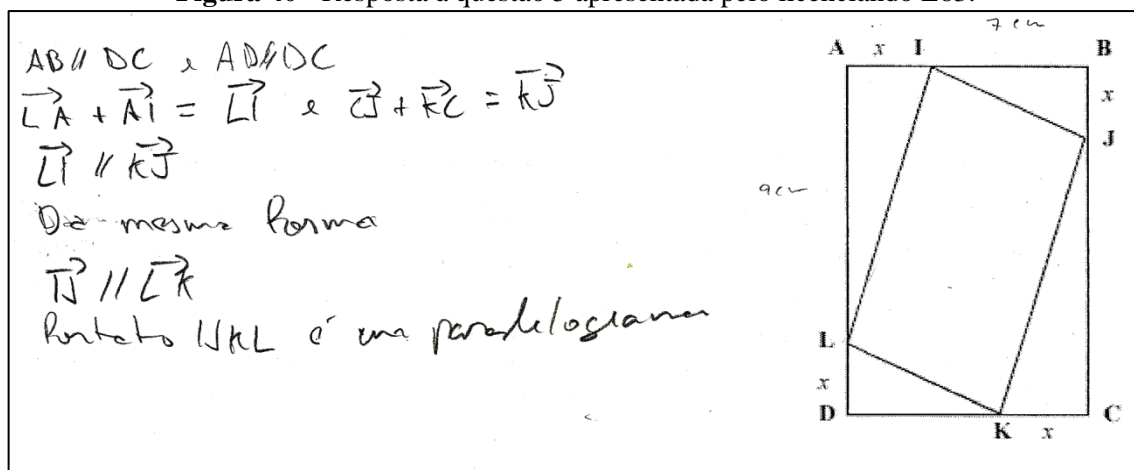 Figura 40 - Resposta à questão 5 apresentada pelo licenciando L05.
AB // DC e AD // DC
LA + AI = LI e CJ + KC = KJ
LI // KJ
Da mesma forma
IJ // LK
Portato IJKL é um paralelograma
7 cm
A x I B
x
J
9 cm
L
x
D C
K x